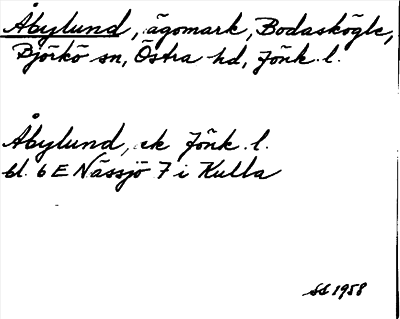 Åbylund, ägomark, Bodaskögle,
Björkö sn, Östra hd, Jönk. l.
Åbylund, ek Jönk. l.
bl. 6 E Nässjö 7 i Kulla
SS 1958